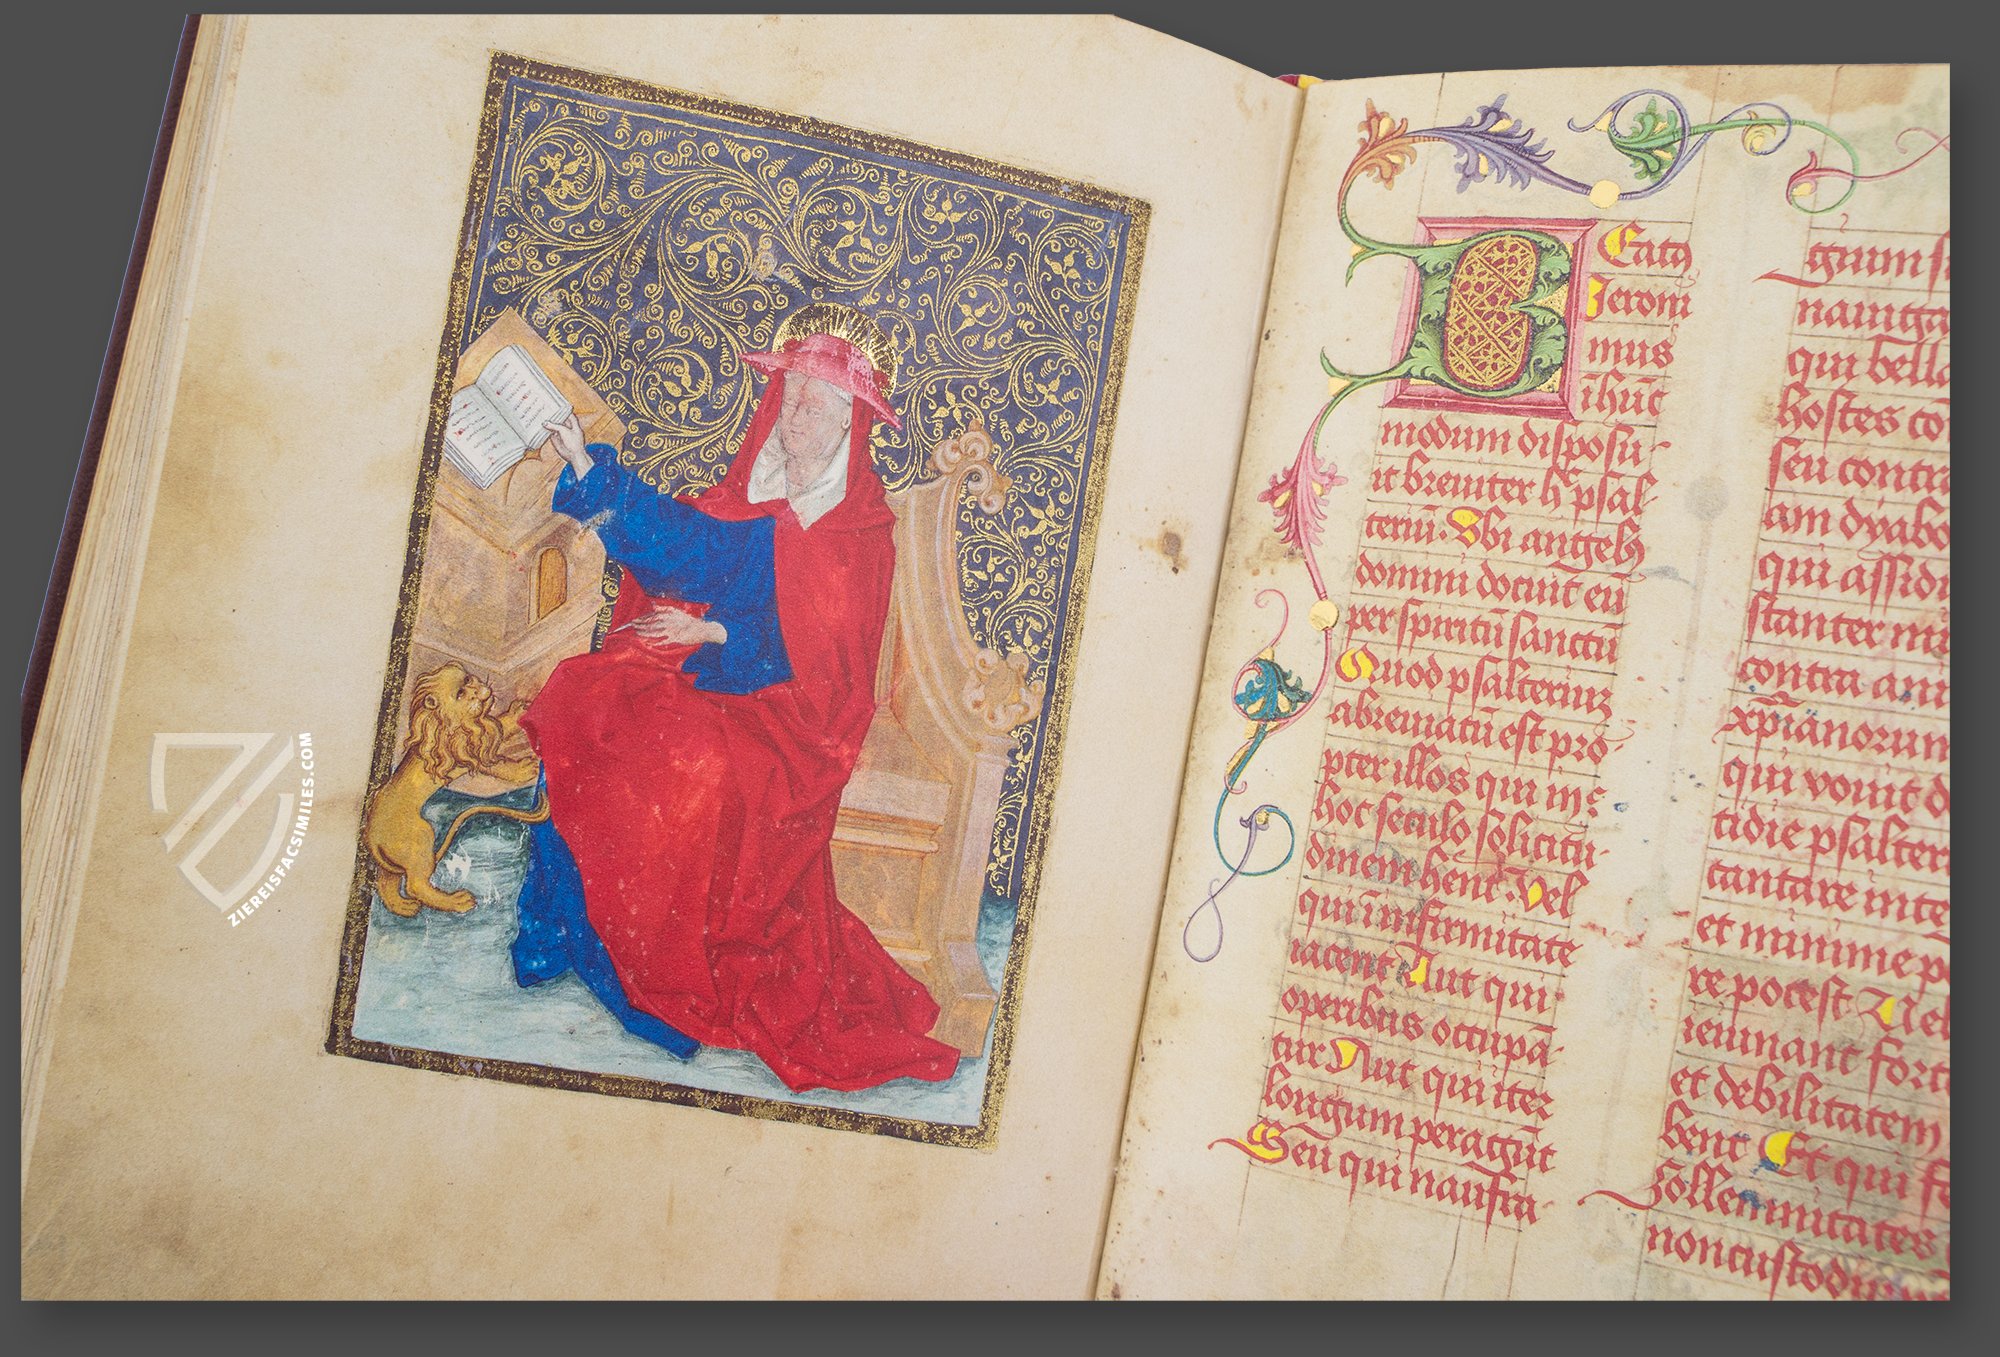 ZIEREISFACSIMILES.COM
Beatꝯ
Jeroni
mus
ī hūc
modum disposu-
it breuiter h̄ psal-
teriū. Vbi angelꝯ
domini docuit eū
per spiritū sanctū
Quod psalteriuʒ
abreuiatū est pro-
pter illos qui in
hoc seculo solicitu-
dinem hēnt. Vel
qui in infirmitate
iacent Aut qui
operibus occupā-
tur Aut qui iter
longum peragūt
Seu qui naufra-
gium si
nauiga
qui bella
hostes co
seu contra
am dyabo
qui assidu
stanter
contra ani
xp̄ianorum
qui vouit
tidie psalter
cantare inte
et minime
re potest Uel
ieiunant forti
et debilitatem
bent Et qui
Sollemnitates
non custodiu